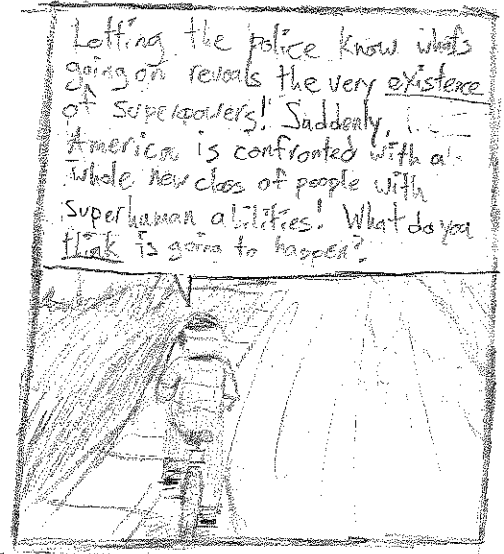 Letting the police know what's
going on reveals the very existence
of superpowers! Suddenly,
America is confronted with a
whole new class of people with
superhuman abilities! What do you
think is going to happen?